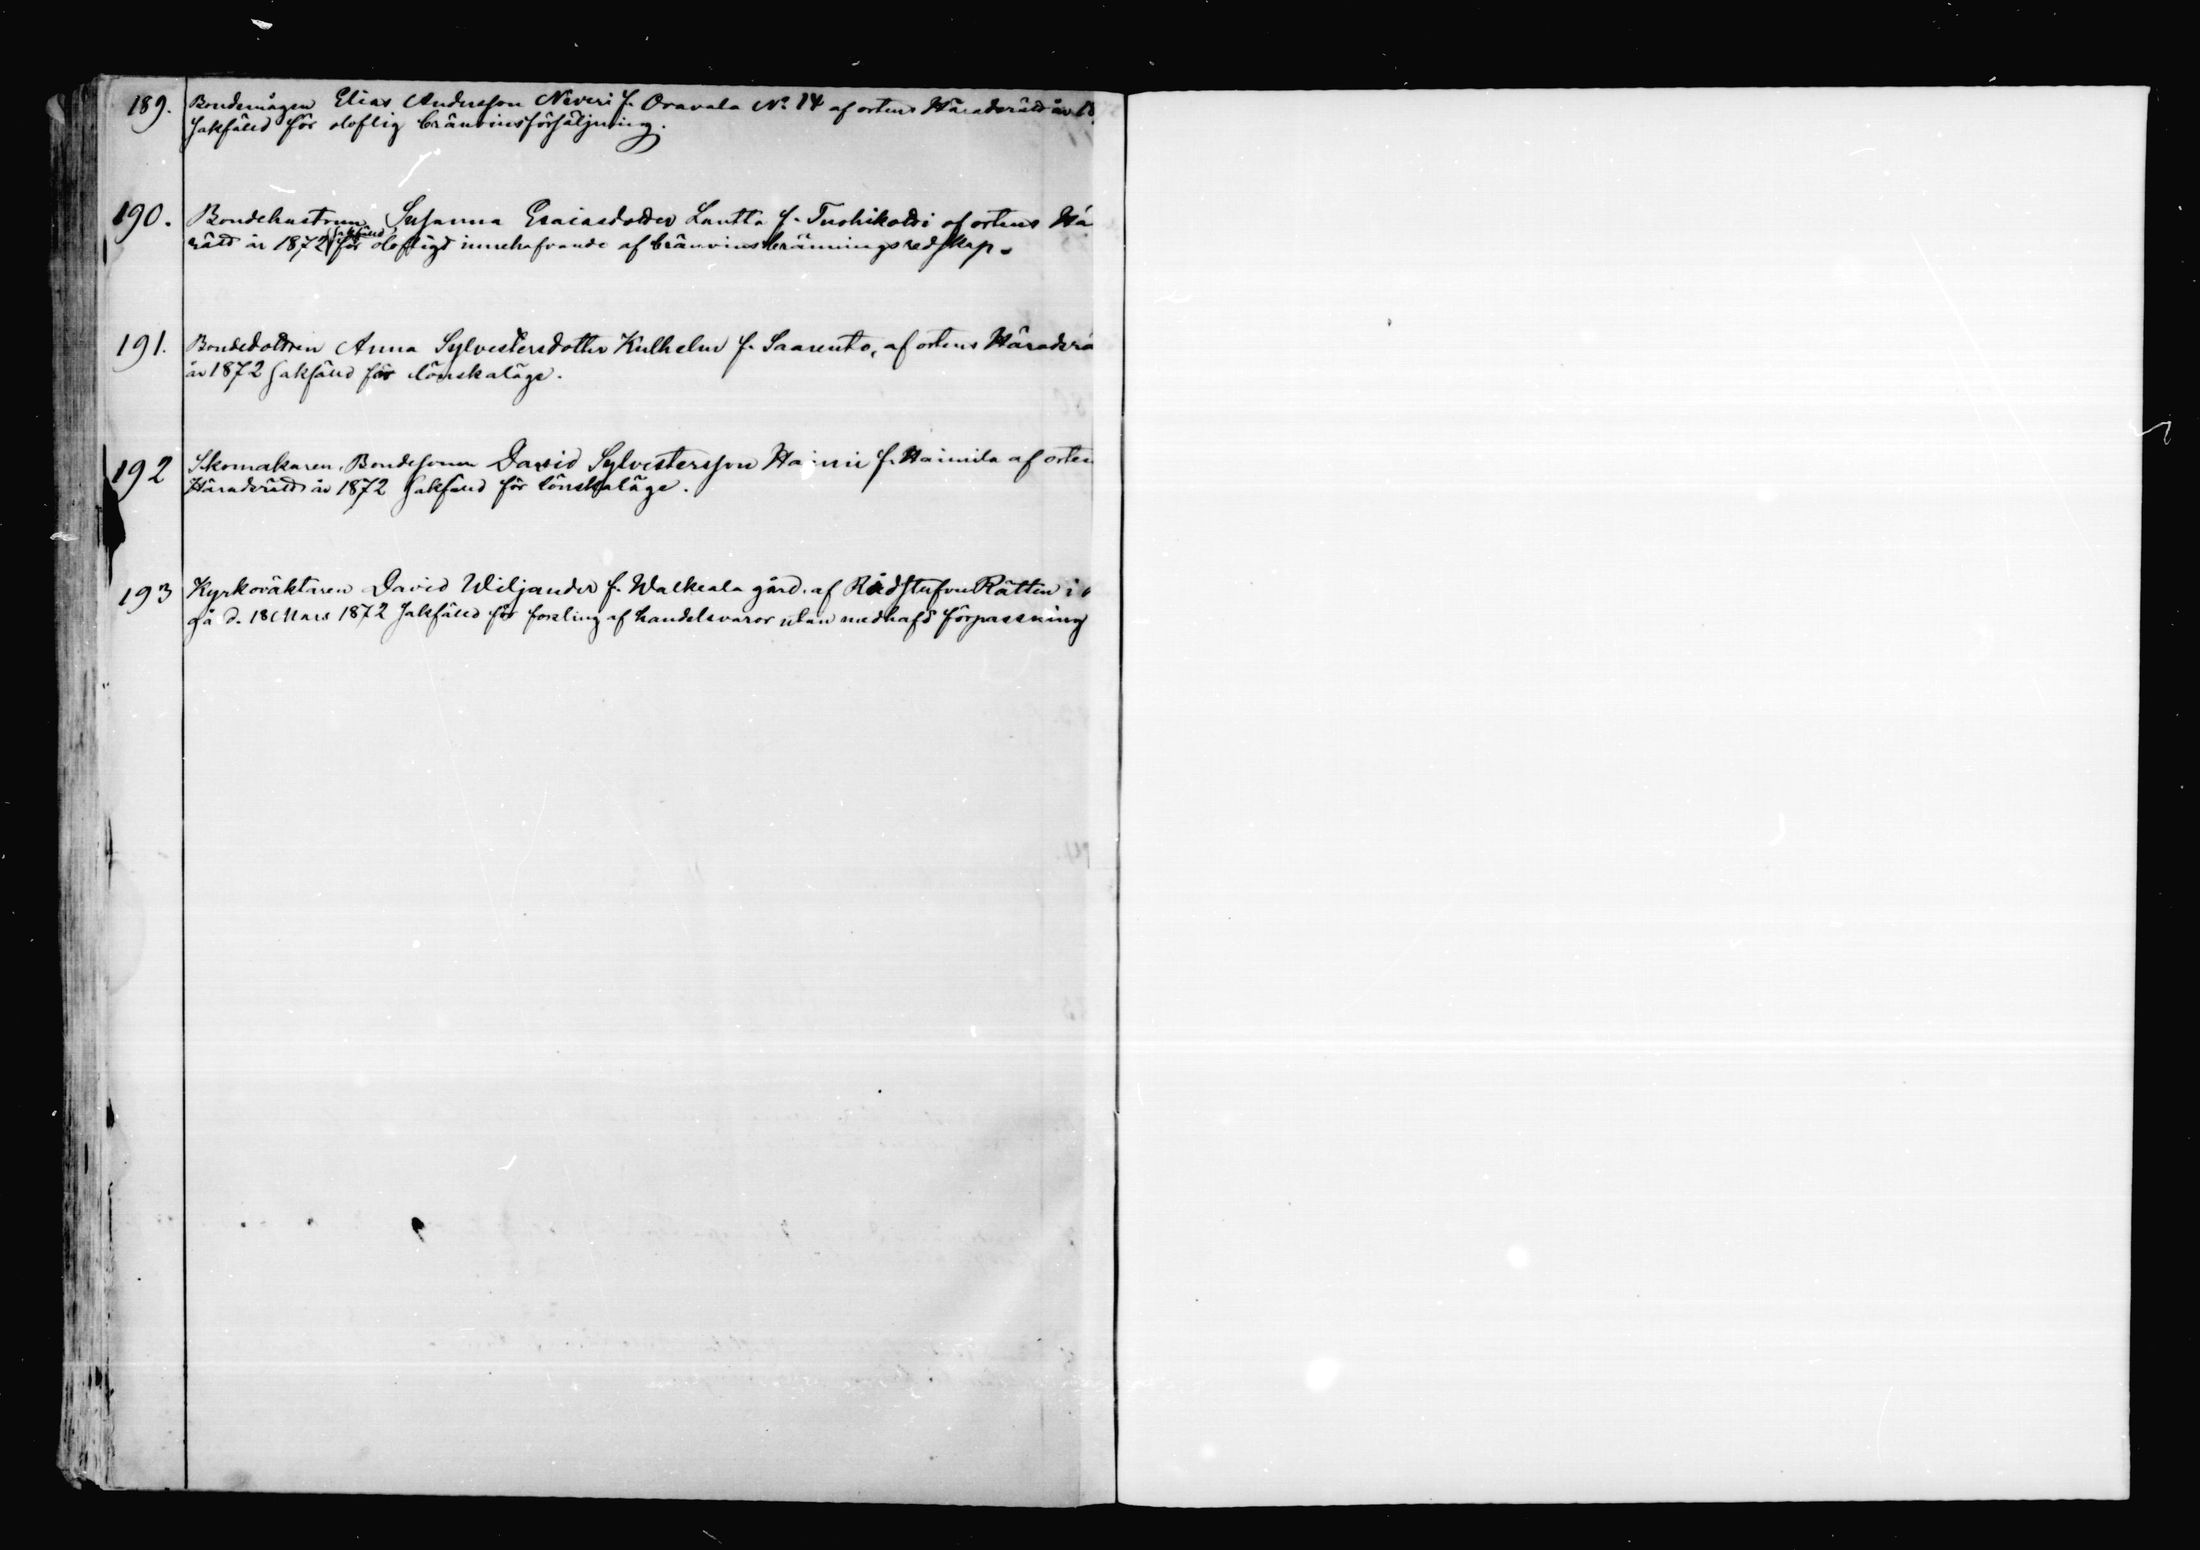 189. Bondemågen Elias Andersson Neveri f. Oravala No 14 af ortens Häradsrätt år 18
sakfälld för oloflig bränvinsförsäljning.
190. Bondehustrun Susanna Esaiasdotter Lautta f. Tuohikotti af ortens Hä
rätt år 1872 sakfälld för olofligt innehafvande af bränvinsbränningsredskap.
191. Bondedottren Anna Sylvestersdotter Kulhelm f. Saarento, af ortens Häradsrä
år 1872 sakfälld för lönskaläge.
192 Skomakaren, Bondesonen David Sylvestersson Haimi f. Haimila af orten
Häradsrätt år 1872 sakfälld för lönskaläge.
193 Kyrkoväktaren David Wiljander f. Walkeala gård. af RådstufvuRätten i
gå d. 18 Mars 1872 sakfälld för forsling af handelsvaror utan medhafd förpassning